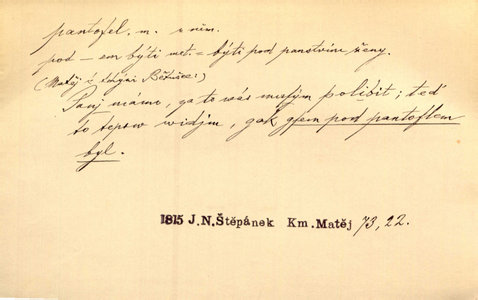 pantofel, m. z něm.
pod - em býti met. = býti pod panstvím ženy.
(Matěj k Bětušce:)
Panj mámo, ga to wás musým políbit; teď
to teprw widjm, gak gsem pod pantoflem
byl.
1815 J.N.Štěpánek Km.Matěj 73, 22.